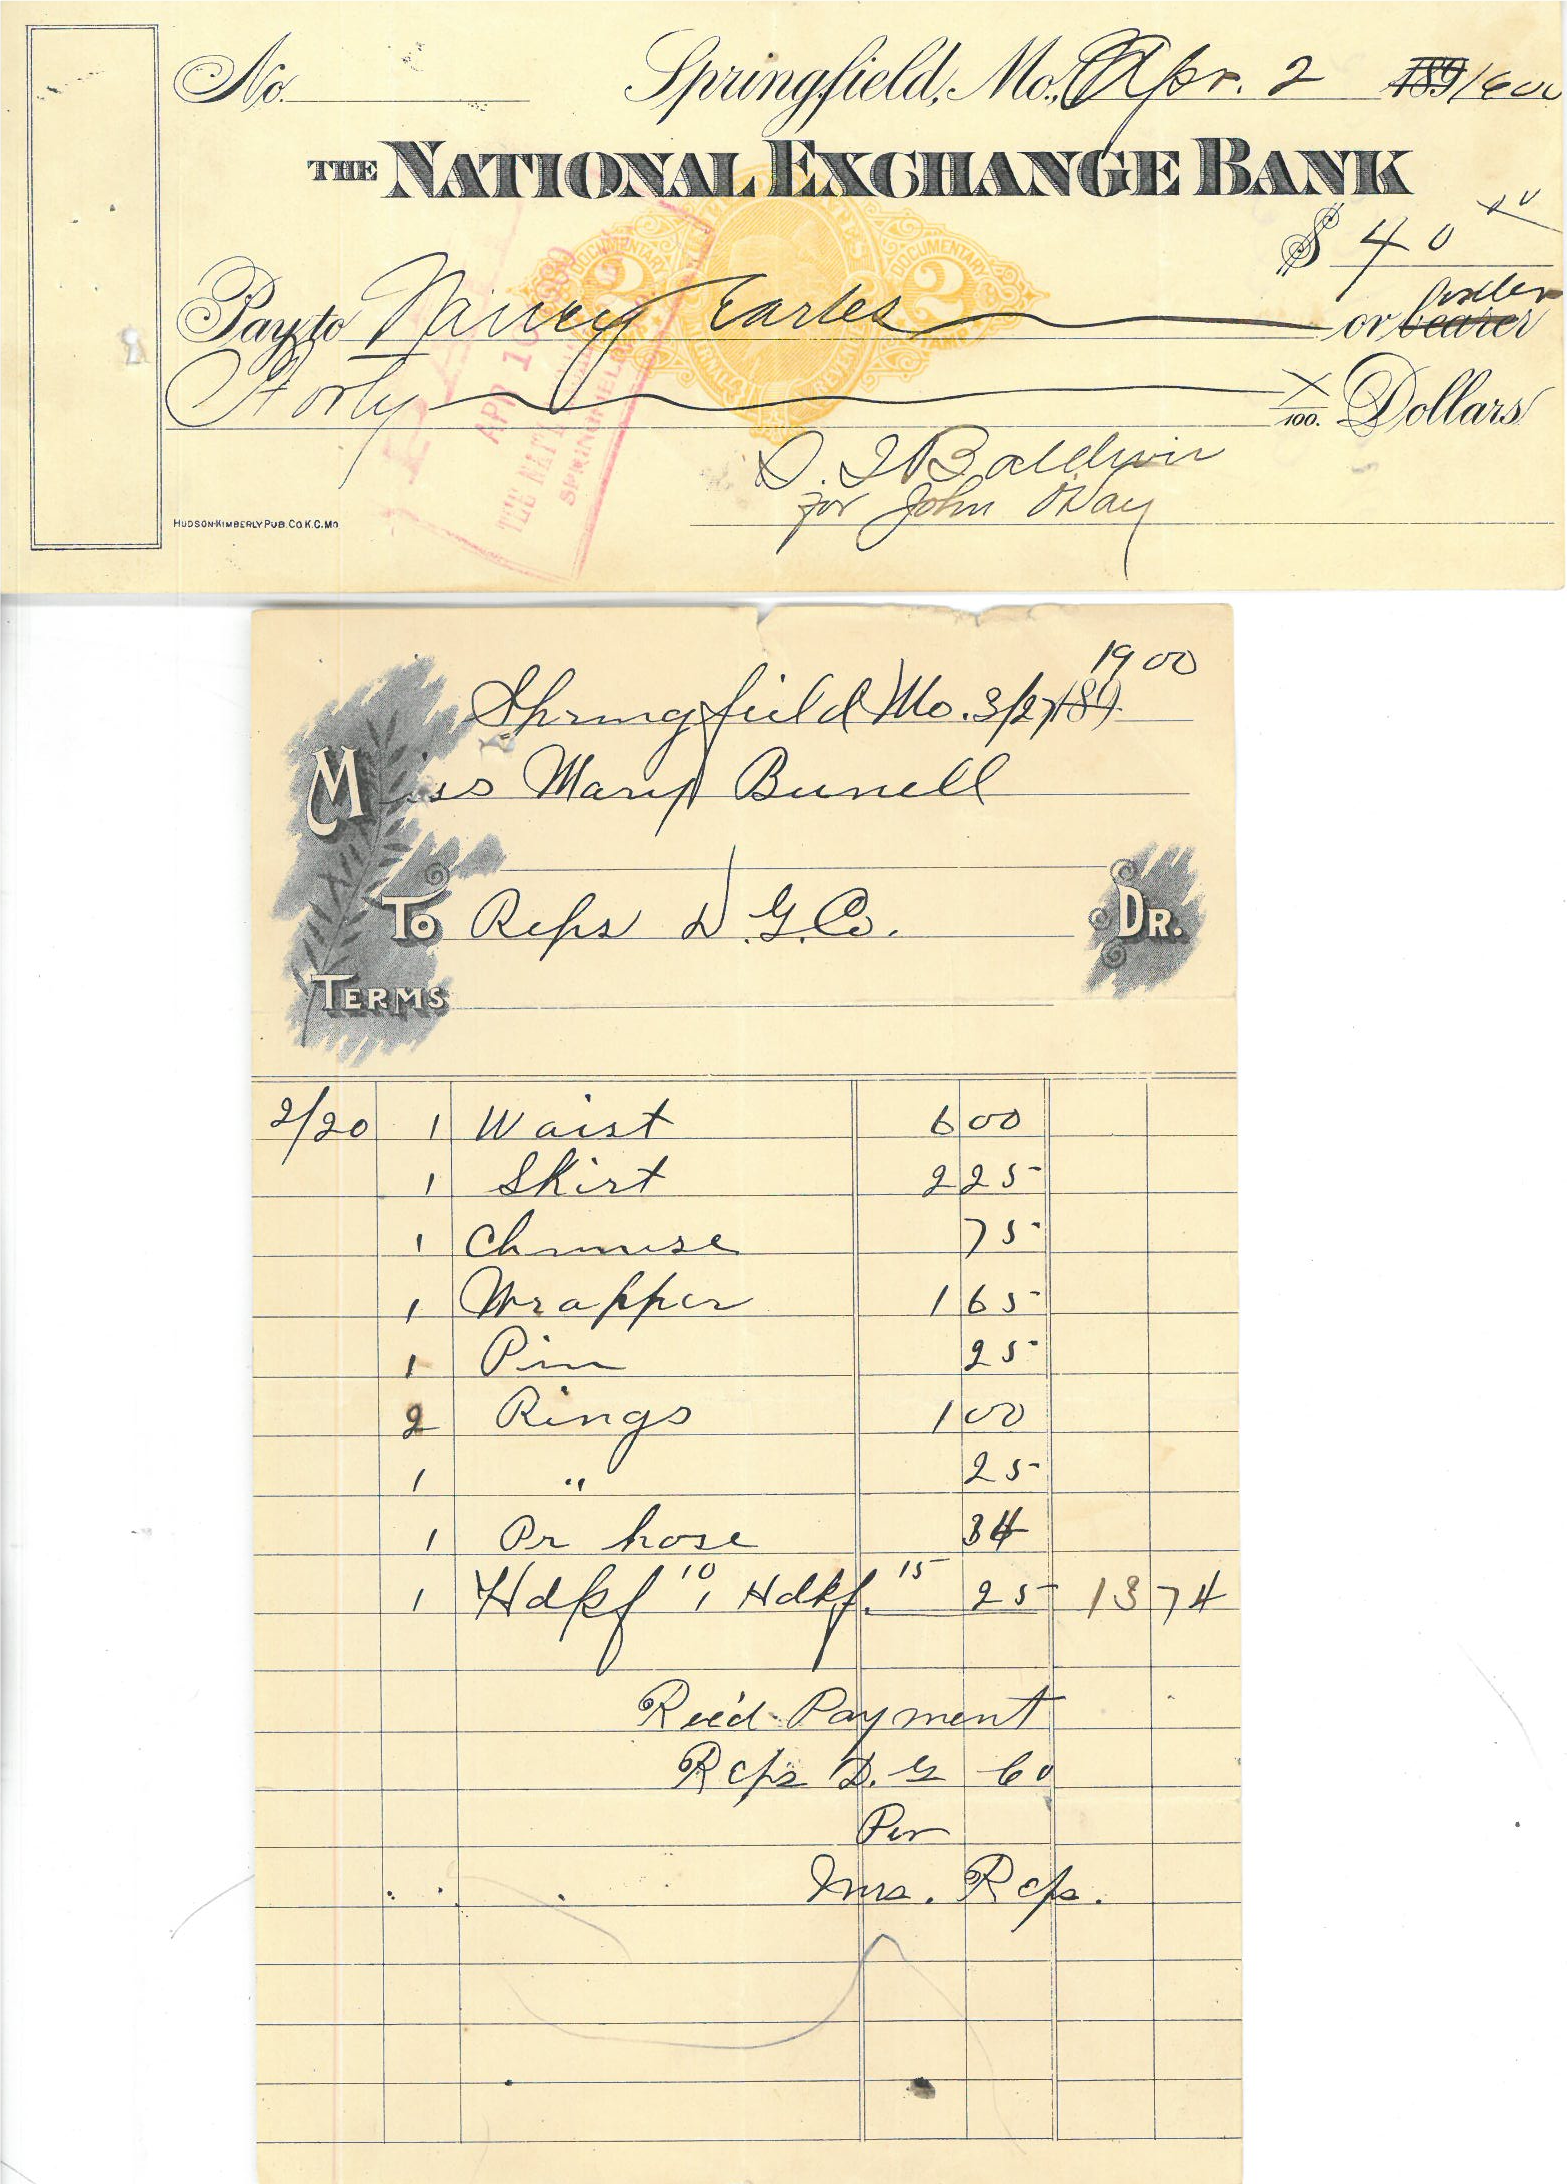 No. Springfield, Mo., Apr. 2 189 1900
THE NATIONAL EXCHANGE BANK
$ 40
Pay to Nancy Earles or bearer order
Forty X/100. Dollars
D. I Baldwin
for John O'Day
HUDSON-KIMBERLY PUB. CO. K.C. MO
PAID
APR 10
THE NAT'L
SPRINGFIELD
DOCUMENTARY
2 2
1900
Springfield Mo. 3/27 189
Miss Mary Bunell
To Reps D.G. Co. Dr.
Terms
2/20 1 Waist 6 00
1 Skirt 2 25
1 Chemise 75
1 Wrapper 1 65
1 Pin 25
2 Rings 1 00
1 " 25
1 Pr hose 34
1 Hdkf 10 1 Hdkf. 15 25 13 74
Rec'd Payment
Reps D. G Co
Per
Mrs. Reps.